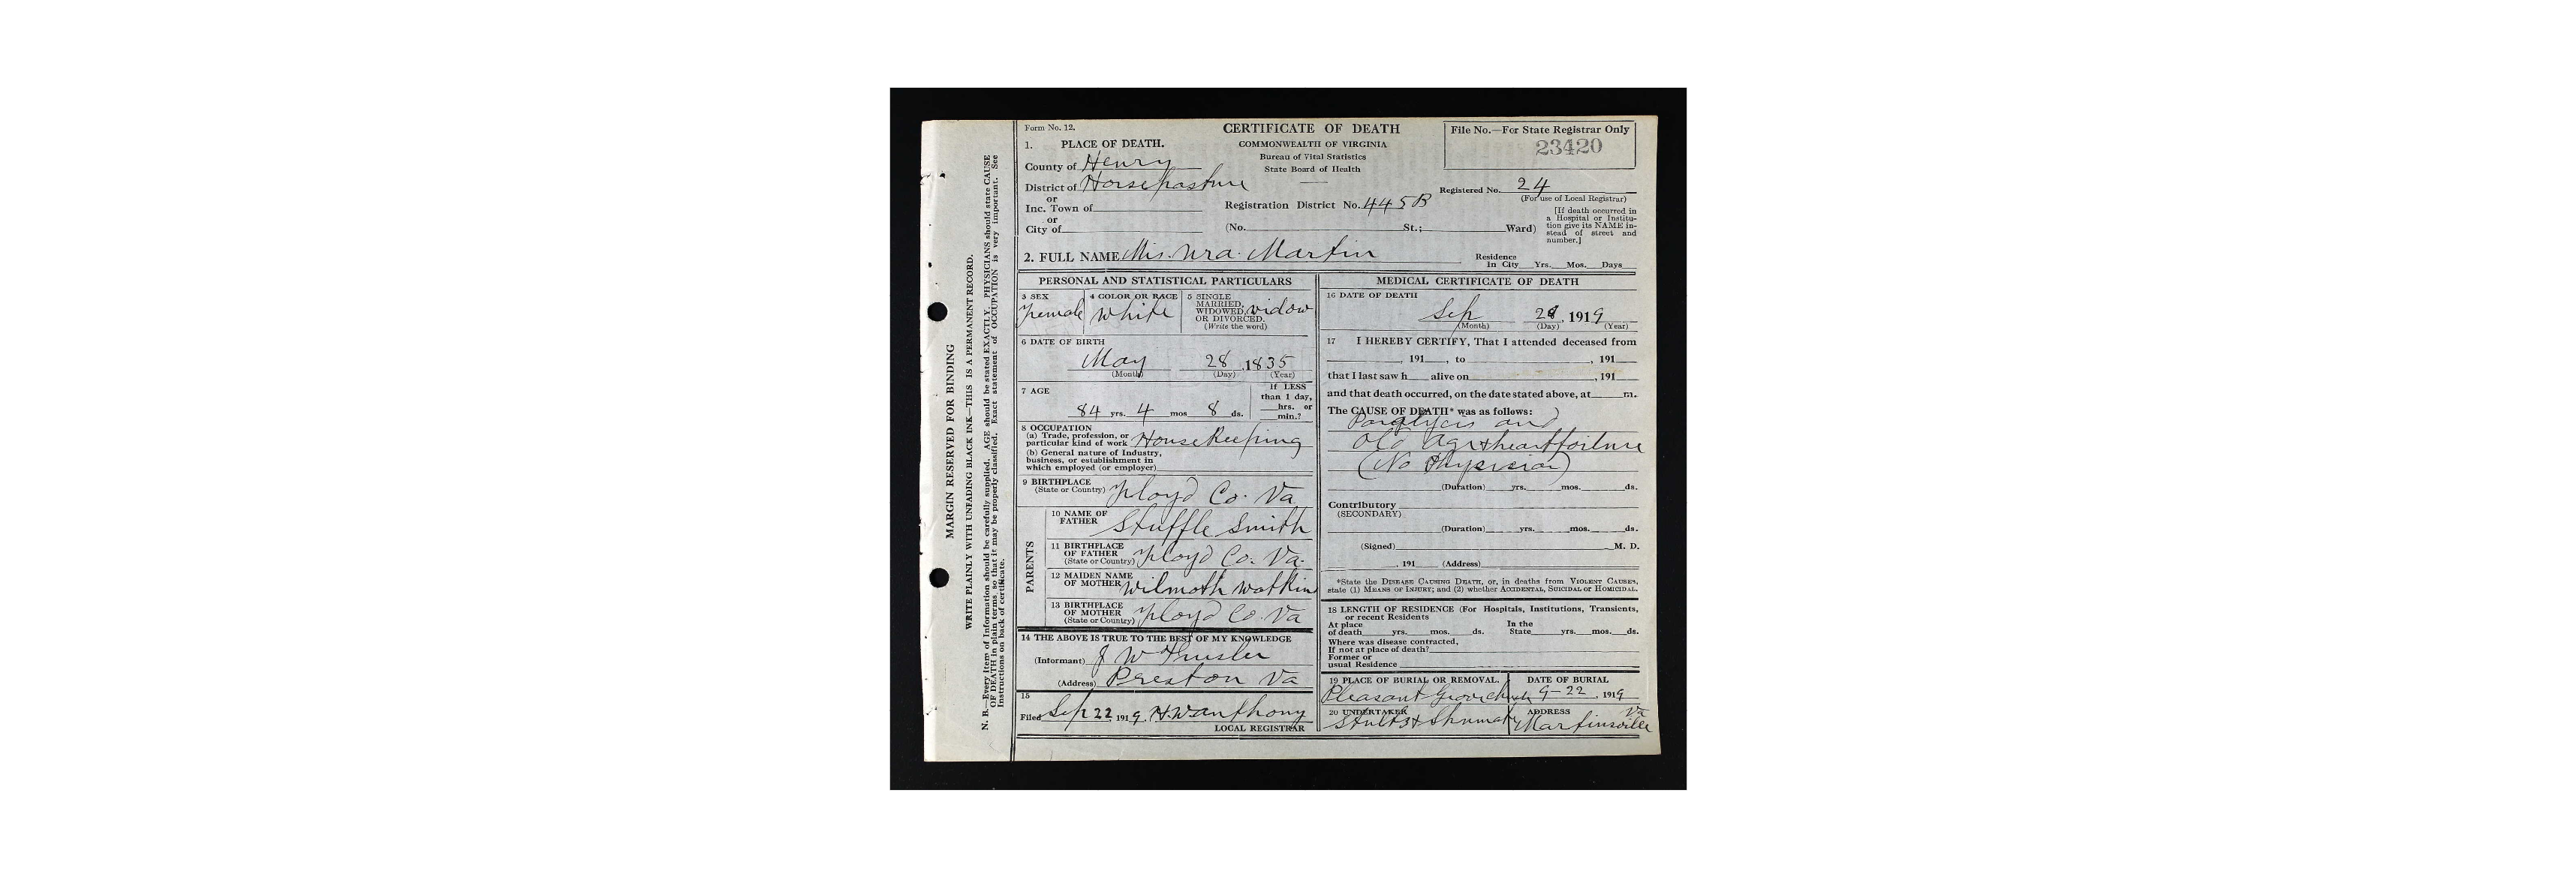 Form No. 12.
CERTIFICATE OF DEATH
COMMONWEALTH OF VIRGINIA
Bureau of Vital Statistics
State Board of Health
File No.—For State Registrar Only
23420
1. PLACE OF DEATH.
County of Henry
District of Horsepasture
or
Inc. Town of
or
City of
Registration District No. 445B
Registered No. 24
(For use of Local Registrar)
(No. St.; Ward)
[If death occurred in
a Hospital or Institu-
tion give its NAME in-
stead of street and
number.]
2. FULL NAME Mis. Martin
Residence
In City Yrs. Mos. Days
PERSONAL AND STATISTICAL PARTICULARS
3 SEX
Female
4 COLOR OR RACE
White
5 SINGLE
MARRIED,
WIDOWED,
OR DIVORCED.
(Write the word)
Widow
6 DATE OF BIRTH
May 28, 1835
(Month) (Day) (Year)
7 AGE
84 yrs. 4 mos 8 ds.
If LESS
than 1 day,
hrs. or
min.?
8 OCCUPATION
(a) Trade, profession, or
particular kind of work House Keeping
(b) General nature of Industry,
business, or establishment in
which employed (or employer)
9 BIRTHPLACE
(State or Country) Floyd Co. Va
PARENTS
10 NAME OF
FATHER Stuffle Smith
11 BIRTHPLACE
OF FATHER
(State or Country) Floyd Co. Va.
12 MAIDEN NAME
OF MOTHER Wilmoth Watkins
13 BIRTHPLACE
OF MOTHER
(State or Country) Floyd Co. Va
14 THE ABOVE IS TRUE TO THE BEST OF MY KNOWLEDGE
(Informant) J W
(Address) Preston Va
15
Filed Sep 22, 1919. H.W. Anthony
LOCAL REGISTRAR
MEDICAL CERTIFICATE OF DEATH
16 DATE OF DEATH
Sep , 1919
(Month) (Day) (Year)
17 I HEREBY CERTIFY, That I attended deceased from
, 191 , to , 191
that I last saw h alive on , 191
and that death occurred, on the date stated above, at m.
The CAUSE OF DEATH* was as follows:
Paralycis and
old age & heart foilure
(No Physician)
(Duration) yrs. mos. ds.
Contributory
(SECONDARY)
(Duration) yrs. mos. ds.
(Signed) M. D.
, 191 (Address)
*State the DISEASE CAUSING DEATH, or, in deaths from VIOLENT CAUSES,
state (1) MEANS OF INJURY; and (2) whether ACCIDENTAL, SUICIDAL or HOMICIDAL.
18 LENGTH OF RESIDENCE (For Hospitals, Institutions, Transients,
or recent Residents
At place
of death yrs. mos. ds.
In the
State yrs. mos. ds.
Where was disease contracted,
If not at place of death?
Former or
usual Residence
19 PLACE OF BURIAL OR REMOVAL.
Pleasant Grove church
DATE OF BURIAL
9-22, 1919
20 UNDERTAKER
Stults &
ADDRESS
Martinsville Va
MARGIN RESERVED FOR BINDING
WRITE PLAINLY WITH UNFADING BLACK INK—THIS IS A PERMANENT RECORD.
N. B.—Every item of Information should be carefully supplied. AGE should be stated EXACTLY. PHYSICIANS should state CAUSE
OF DEATH in plain terms, so that it may be properly classified. Exact statement of OCCUPATION is very important. See
instructions on back of certificate.